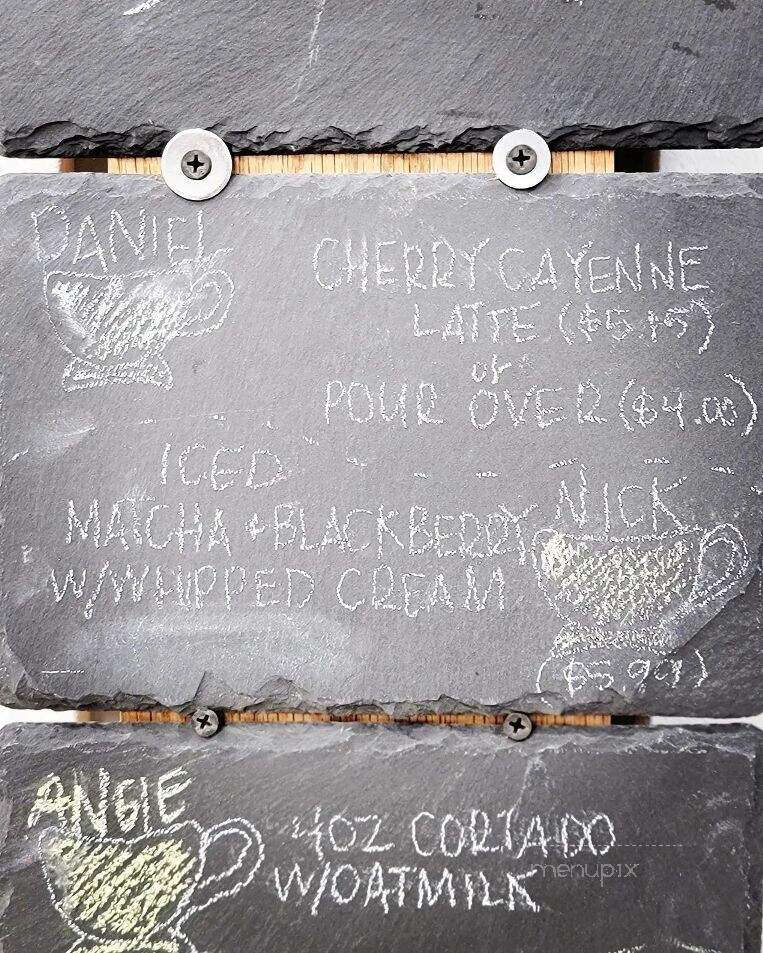 DANIEL
CHERRY CAYENNE
LATTE ($5.15)
or
POUR OVER ($4.00)
ICED
MATCHA + BLACKBERRY
W/WHIPPED CREAM
NICK
($5.99)
ANGIE
4OZ CORTADO
W/OATMILK
menupix